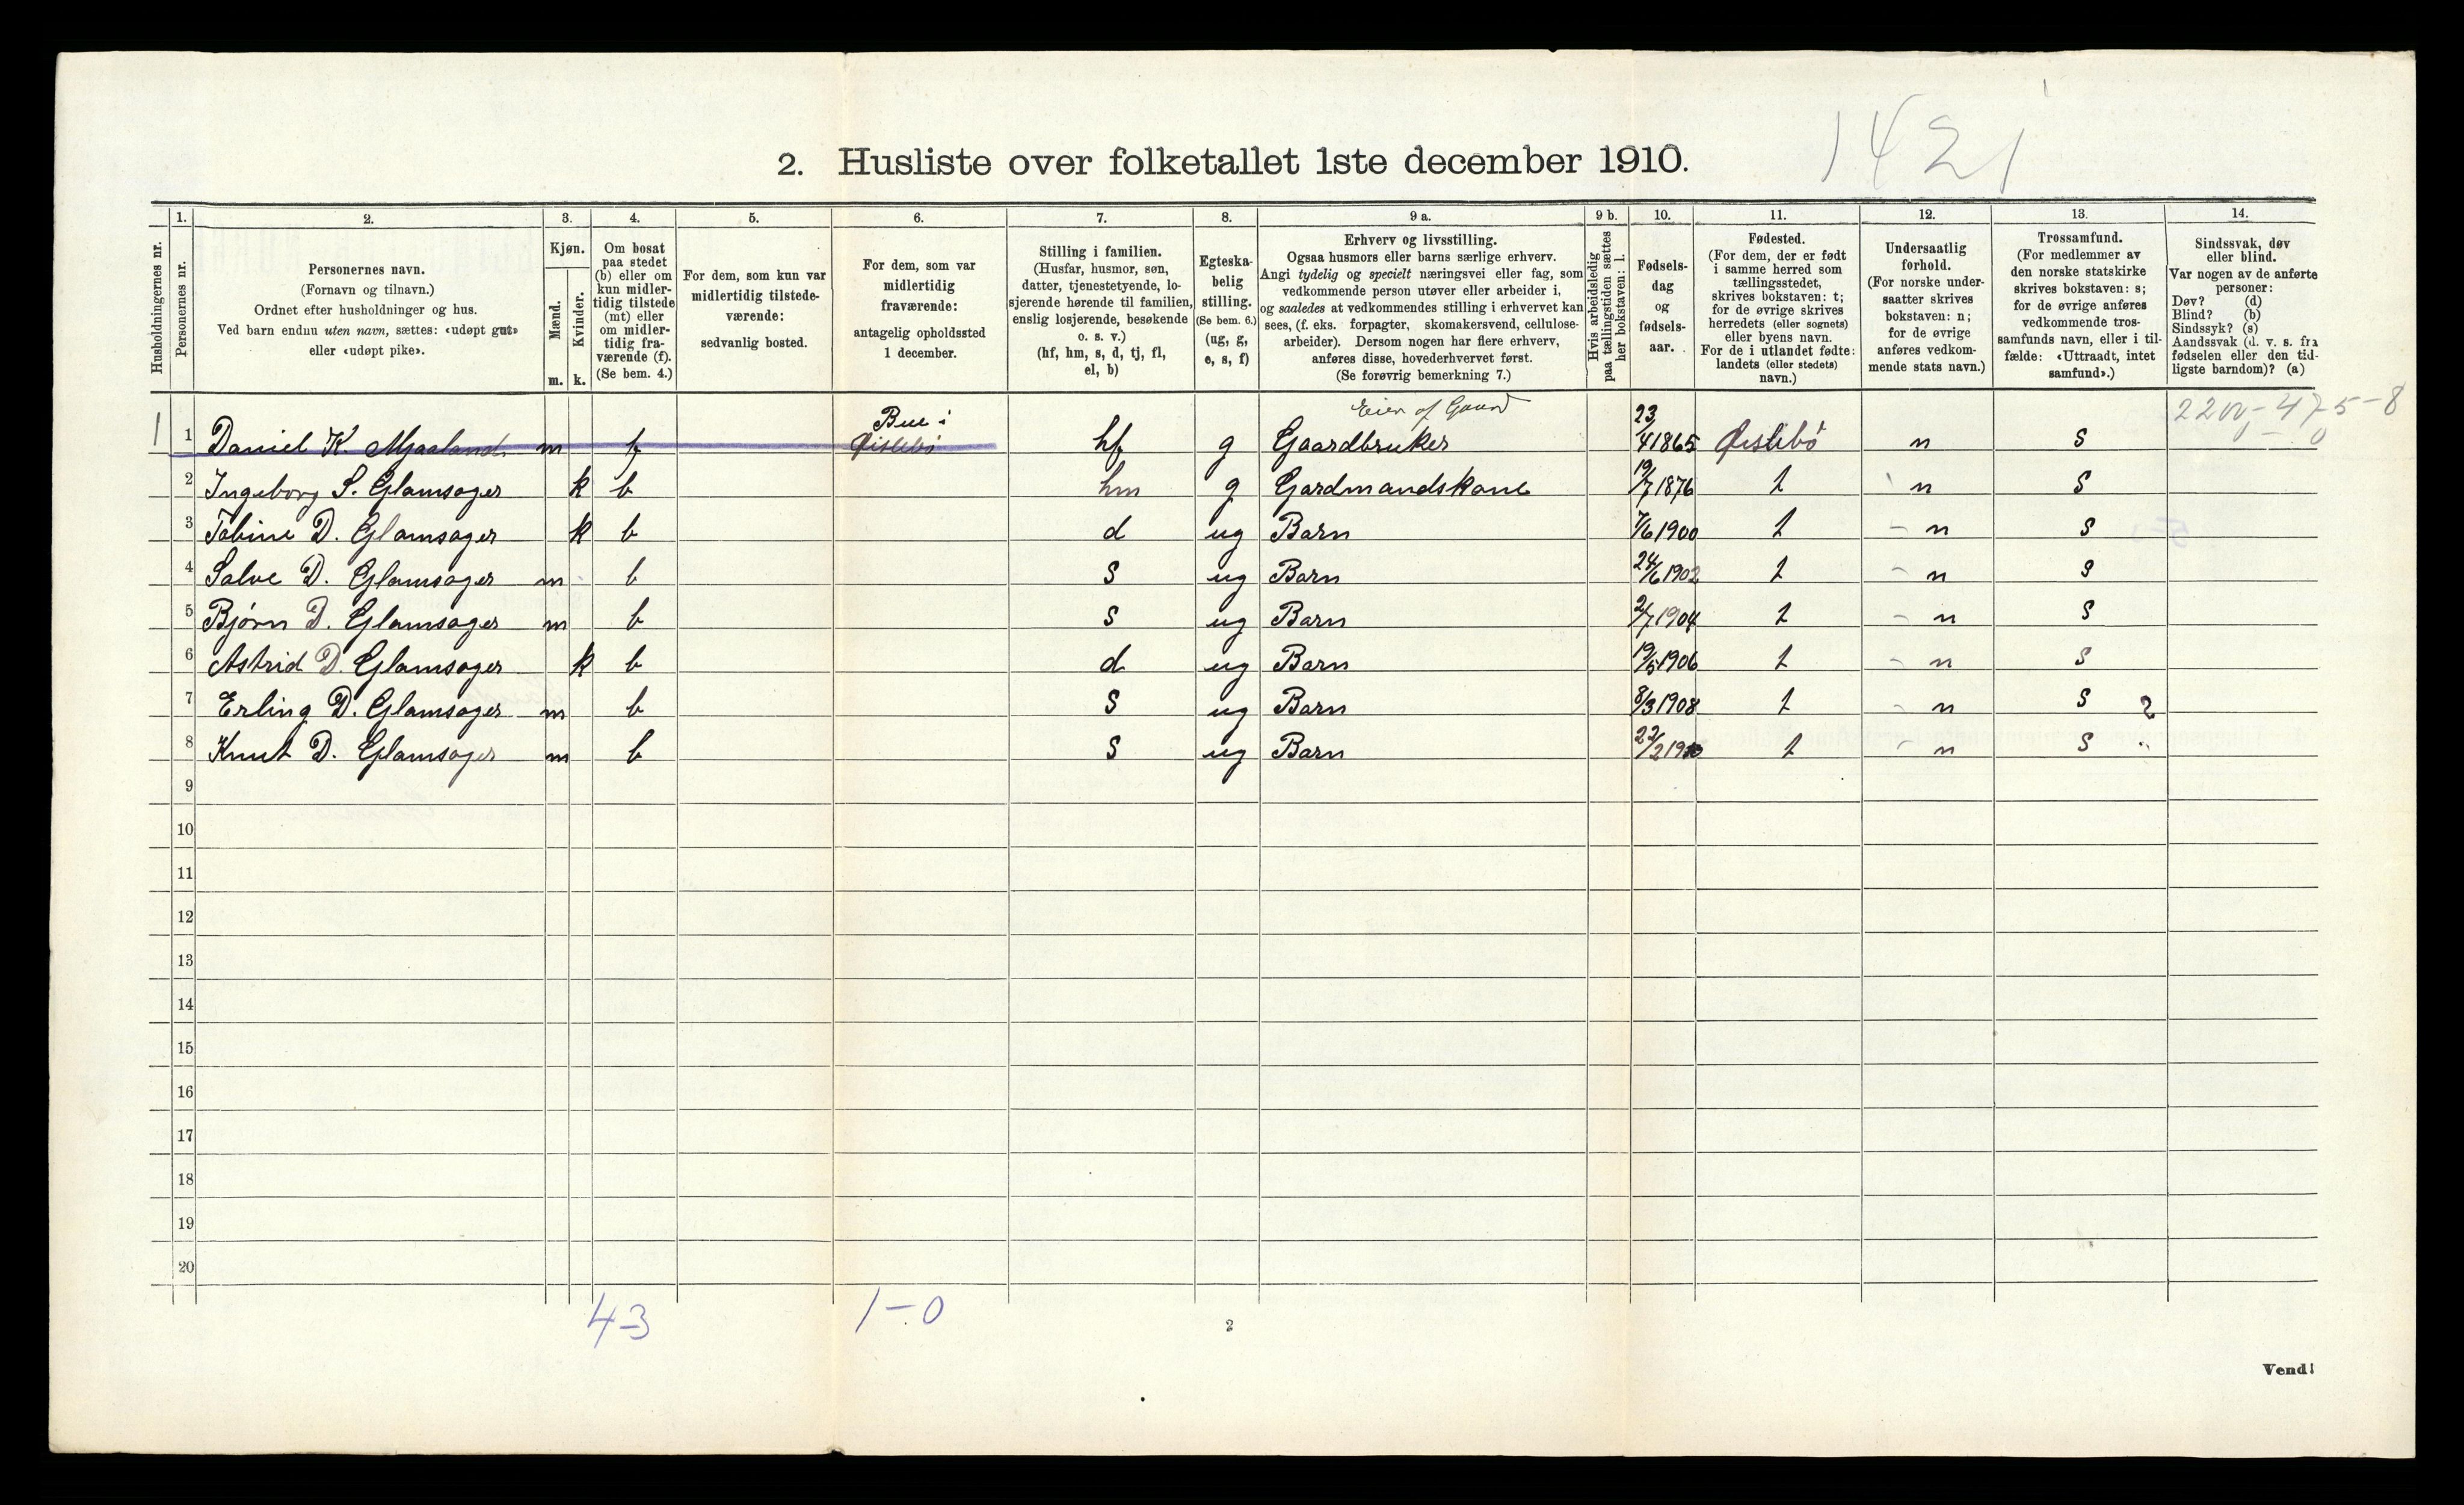 1421
2. Husliste over folketallet 1ste december 1910.
Husholdningernes nr.
1.
Personernes nr.
2.
Personernes navn.
(Fornavn og tilnavn.)
Ordnet efter husholdninger og hus.
Ved barn endnu uten navn, sættes: «udøpt gut»
eller «udøpt pike».
3.
Kjøn.
Mænd.
m.
Kvinder.
k.
4.
Om bosat
paa stedet
(b) eller om
kun midler-
tidig tilstede
(mt) eller
om midler-
tidig fra-
værende (f).
(Se bem. 4.)
5.
For dem, som kun var
midlertidig tilstede-
værende:
sedvanlig bosted.
6.
For dem, som var
midlertidig
fraværende:
antagelig opholdssted
1 december.
7.
Stilling i familien.
(Husfar, husmor, søn,
datter, tjenestetyende, lo-
sjerende hørende til familien,
enslig losjerende, besøkende
o. s. v.)
(hf, hm, s, d, tj, fl,
el, b)
8.
Egteska-
belig
stilling.
(Se bem. 6.)
(ug, g,
e, s, f)
9 a.
Erhverv og livsstilling.
Ogsaa husmors eller barns særlige erhverv.
Angi tydelig og specielt næringsvei eller fag, som
vedkommende person utøver eller arbeider i,
og saaledes at vedkommendes stilling i erhvervet kan
sees, (f. eks. forpagter, skomakersvend, cellulose-
arbeider). Dersom nogen har flere erhverv,
anføres disse, hovederhvervet først.
(Se forøvrig bemerkning 7.)
9 b.
Hvis arbeidsledig
paa tællingstiden sættes
her bokstaven: l.
10.
Fødsels-
dag
og
fødsels-
aar.
11.
Fødested.
(For dem, der er født
i samme herred som
tællingsstedet,
skrives bokstaven: t;
for de øvrige skrives
herredets (eller sognets)
eller byens navn.
For de i utlandet fødte:
landets (eller stedets)
navn.)
12.
Undersaatlig
forhold.
(For norske under-
saatter skrives
bokstaven: n;
for de øvrige
anføres vedkom-
mende stats navn.)
13.
Trossamfund.
(For medlemmer av
den norske statskirke
skrives bokstaven: s;
for de øvrige anføres
vedkommende tros-
samfunds navn, eller i til-
fælde: «Uttraadt, intet
samfund».)
14.
Sindssvak, døv
eller blind.
Var nogen av de anførte
personer:
Døv? (d)
Blind? (b)
Sindssyk? (s)
Aandssvak (d. v. s. fra
fødselen eller den tid-
ligste barndom)? (a)
1 1 Daniel K. Mjaaland m f Bue i Øislebö hf g Eier af Gaard Gaardbruker 23/4 1865 Øislebö n s
2 Ingeborg S. Glamsager k b hm g Gardmandskone 19/7 1876 t n s
3 Tobine D. Glamsager k b d ug Barn 7/6 1900 t n s
4 Salve D. Glamsager m b s ug Barn 24/6 1902 t n s
5 Bjørn D. Glamsager m b s ug Barn 2/7 1904 t n s
6 Astrid D. Glamsager k b d ug Barn 19/5 1906 t n s
7 Erling D. Glamsager m b s ug Barn 8/3 1908 t n s 2
8 Knut D. Glamsager m b s ug Barn 22/2 1910 t n s
9
10
11
12
13
14
15
16
17
18
19
20
4-3
1-0
2
Vend!